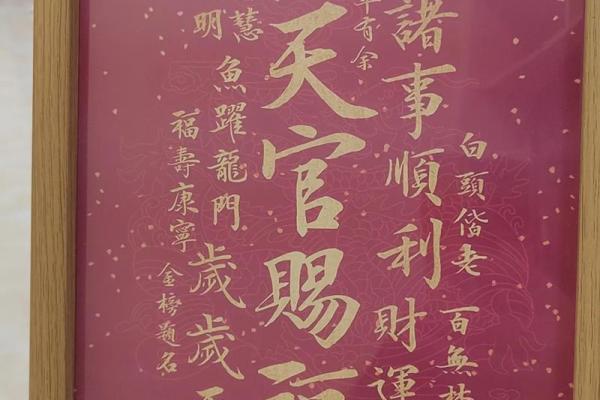 白頭偕老
百無
諸事順利
財運
有余
天官賜
慧
明
魚躍龍門
歲歲
福壽康寧
金榜題名